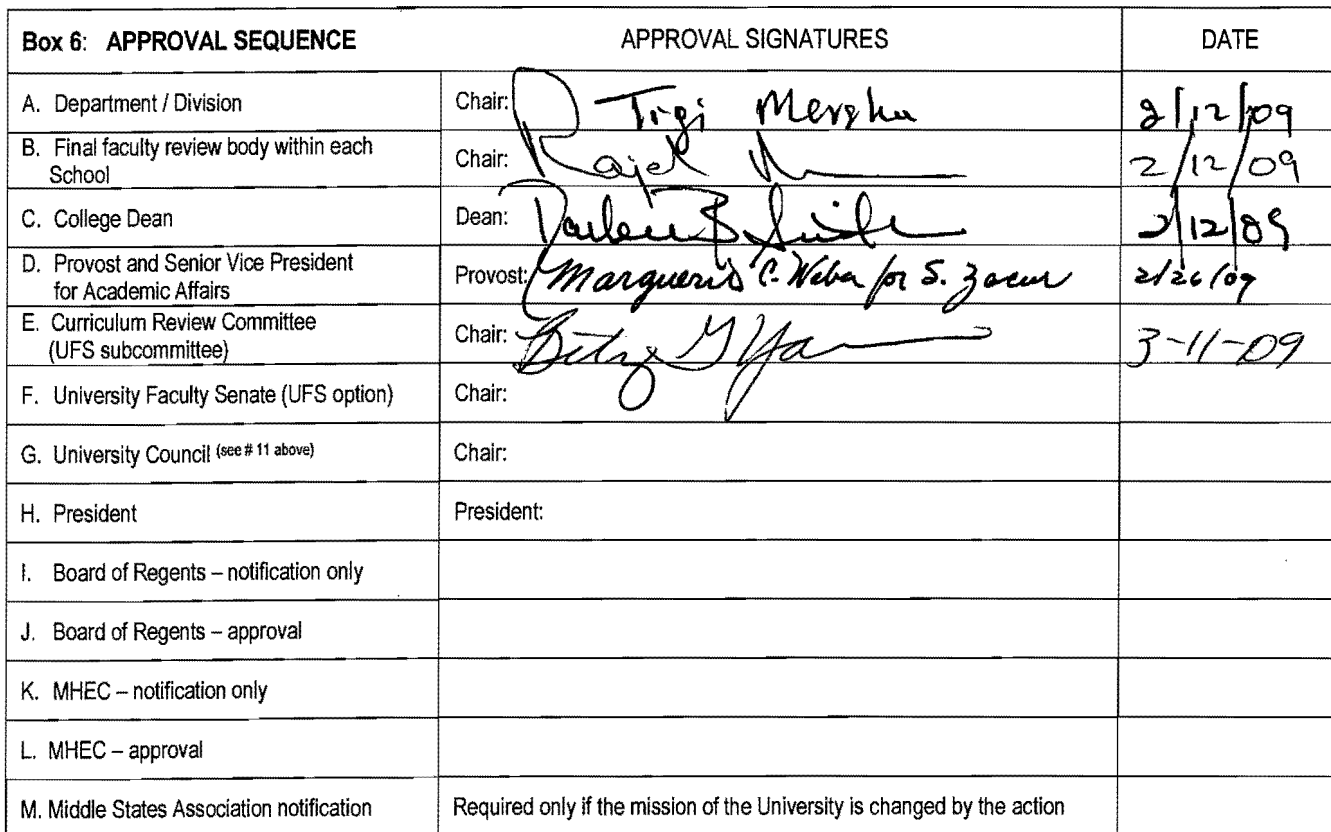 Box 6: APPROVAL SEQUENCE APPROVAL SIGNATURES DATE
A. Department / Division Chair: Tigi Mersha 2/12/09
B. Final faculty review body within each
School Chair: Rajesh 2/12/09
C. College Dean Dean: 2/12/09
D. Provost and Senior Vice President
for Academic Affairs Provost: Marguerite C. Weber for S. Zacur 2/26/09
E. Curriculum Review Committee
(UFS subcommittee) Chair: 3-11-09
F. University Faculty Senate (UFS option) Chair:
G. University Council (see # 11 above) Chair:
H. President President:
I. Board of Regents – notification only
J. Board of Regents – approval
K. MHEC – notification only
L. MHEC – approval
M. Middle States Association notification Required only if the mission of the University is changed by the action